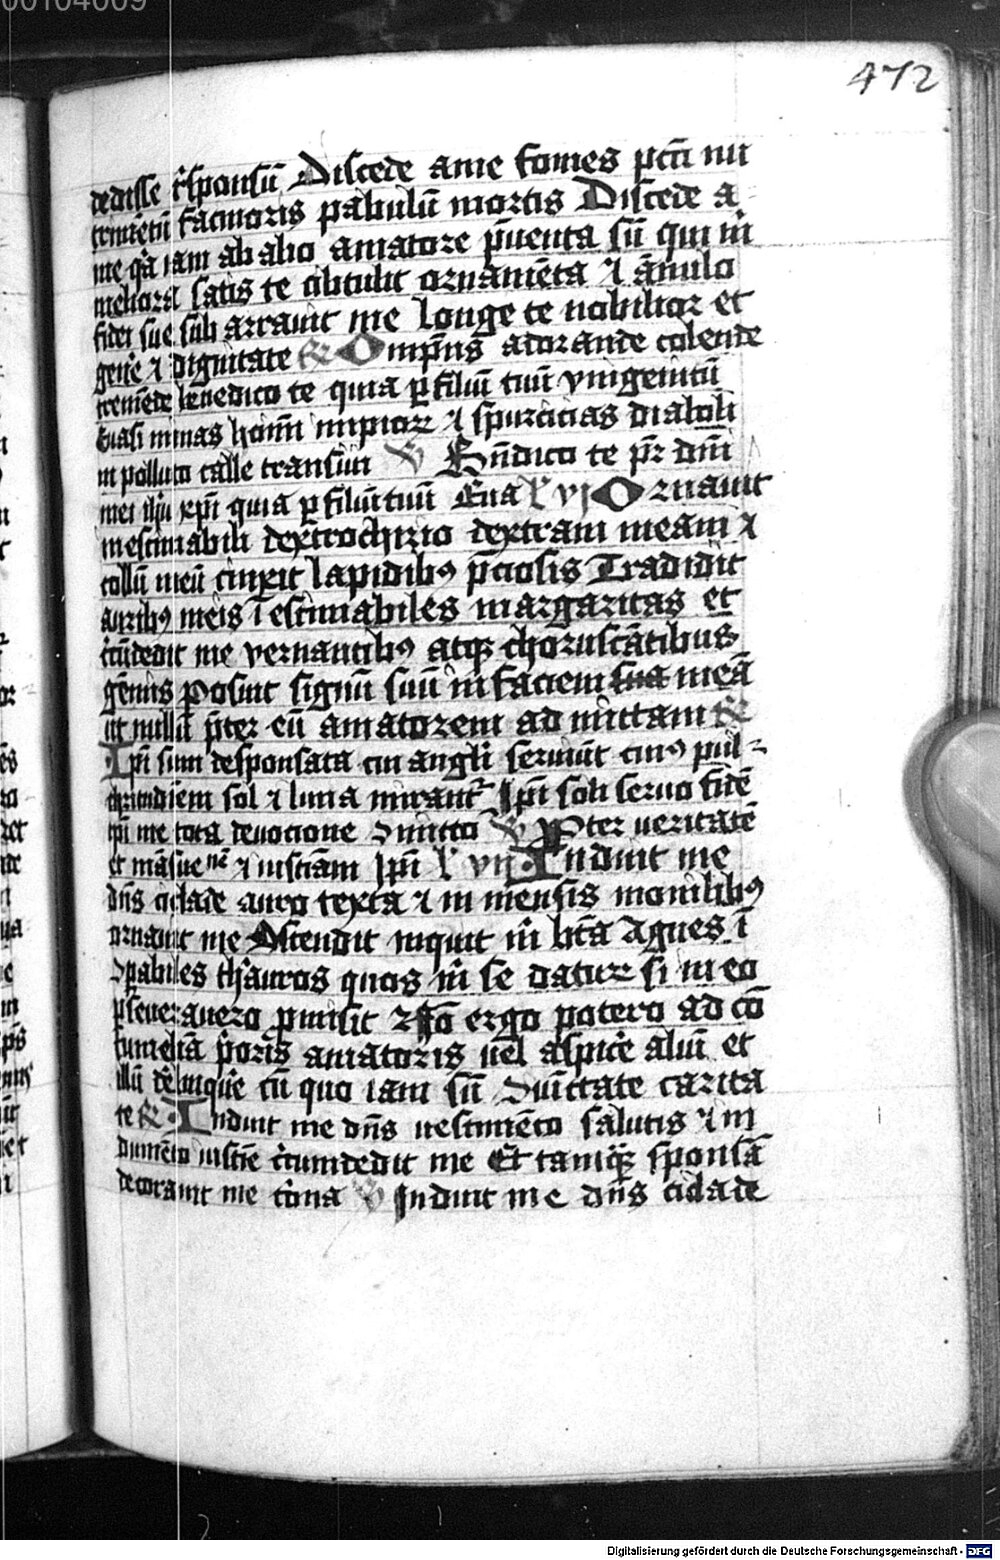 00104009
472
dedisse r̄sponsū Discede ame fomes pctī nu
trimētū facinoris pabulū mortis Discede a
me qͣ iam ab alio amatore p̄uenta sū qui m̄
meliora satis te obtulit ornamēta ⁊ ānulo
fidei sue sub arrauit me Longe te nobilior et
gen̄e ⁊ dignitate R̄ Omp̄ns adorande colende
tremēde benedico te quia p filiū tuū vnigenitū
Euasi minas hoīm impiorꝝ ⁊ spurcicias diaboli
in polluto calle transiui V Bn̄dico te pr̄ dn̄i
mei ihu xp̄i quia p filiū tuū Eua L vj Ornauit
inestimabili dextrochirio dextram meam ⁊
collū meū cinxit lapidibꝰ p̄ciosis Tradidit
auribꝰ meis īestimabiles margaritas et
cͥcūdedit me vernantibꝰ atqꝫ choruscātibus
gēmis Posuit signū suū in faciem sua meā
ut nullū p̄ter eū amatorem ad mittam R̄
Ip̄i sum desponsata cui angl̄i seruiūt cuiꝰ pul-
chritudinem sol ⁊ luna mirant᷑ Ip̄i soli seruo fidē
ip̄i me tota deuocione Dmitto V Pter veritatē
et māsue nē ⁊ iusticiam Ip̄ī L vij Induit me
dn̄s ciclade auro texta ⁊ in mensīs monilibꝰ
ornauit me Ostendit inquit m̄ btā Agnes ī
Dpabiles thāuros quos m̄ se datur si in eo
pseuerauero pmisit Nō ergo potero ad cō
tumeliā p̄oris amatoris uel aspic̄e aliū et
illū der̄linquē cū quo iam sū Duīctate carita
te R̄ Induit me dn̄s vestimēto salutis ⁊ in
dumēto iusticīe cͥcumdedit me Et tamqꝫ sponsā
decorauit me cōna V Induit me dn̄s ciclade
Digitalisierung gefördert durch die Deutsche Forschungsgemeinschaft - DFG